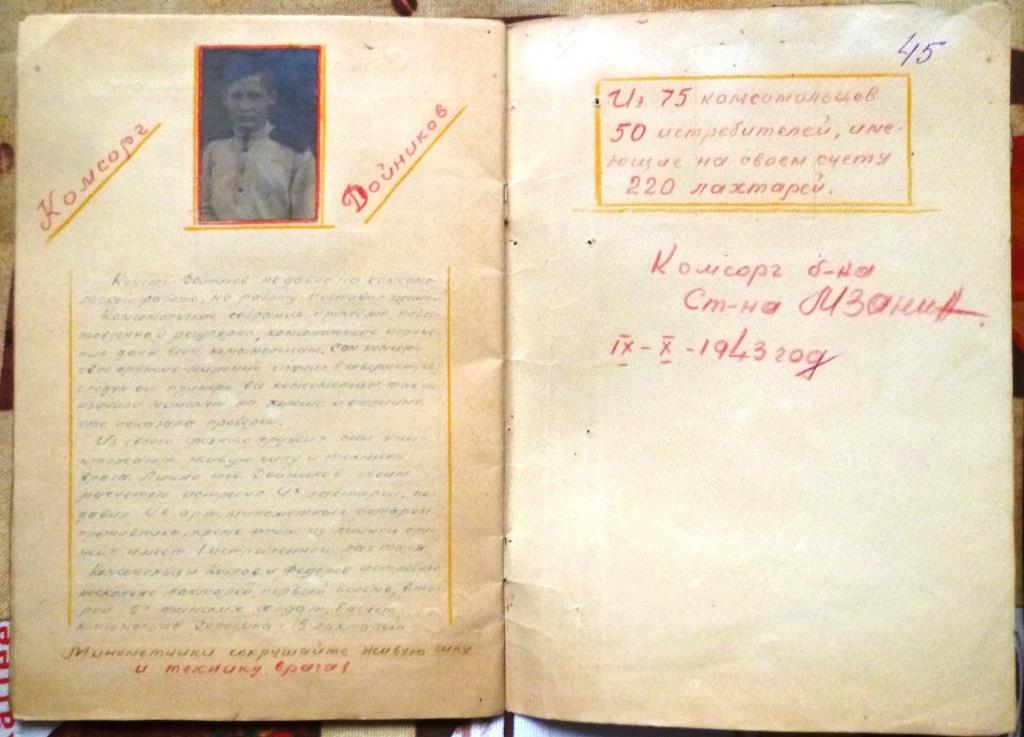 Комсорг
Дойников
Комсорг Дойников недавно на комсомо-
льской работе, но работу поставил
Комсомольские собрания проводит подго-
товленно и регулярно, комсомольские поруче-
ния даны всем комсомольцам. Сам комсорг
свое оружие-миномет изучил в совершенстве,
следуя его примеру все комсомольцы также
изучили миномет на хорошо и отлично
что показала проверка.
Из своего грозного оружия они уни-
чтожают живую силу и технику
врага. Лично тов. Дойников своим
расчетом истребил 4х лахтарей, по-
давил 4е арт. минометных батареи
противника, кроме этого из личного ору-
жия имеет 1 истребленного лахтаря.
Комсомольцы Козлов и Федоров истребили
несколько лахтарей, первый более, вто-
рой 2х финских солдат. Расчет
комсомольца 15 лахтарей.
Минометчики сокрушайте живую силу
и технику врага!
45
Из 75 комсомольцев
50 истребителей, име-
ющие на своем счету
220 лахтарей.
Комсорг б-на
Ст-на
IX-X-1943 год